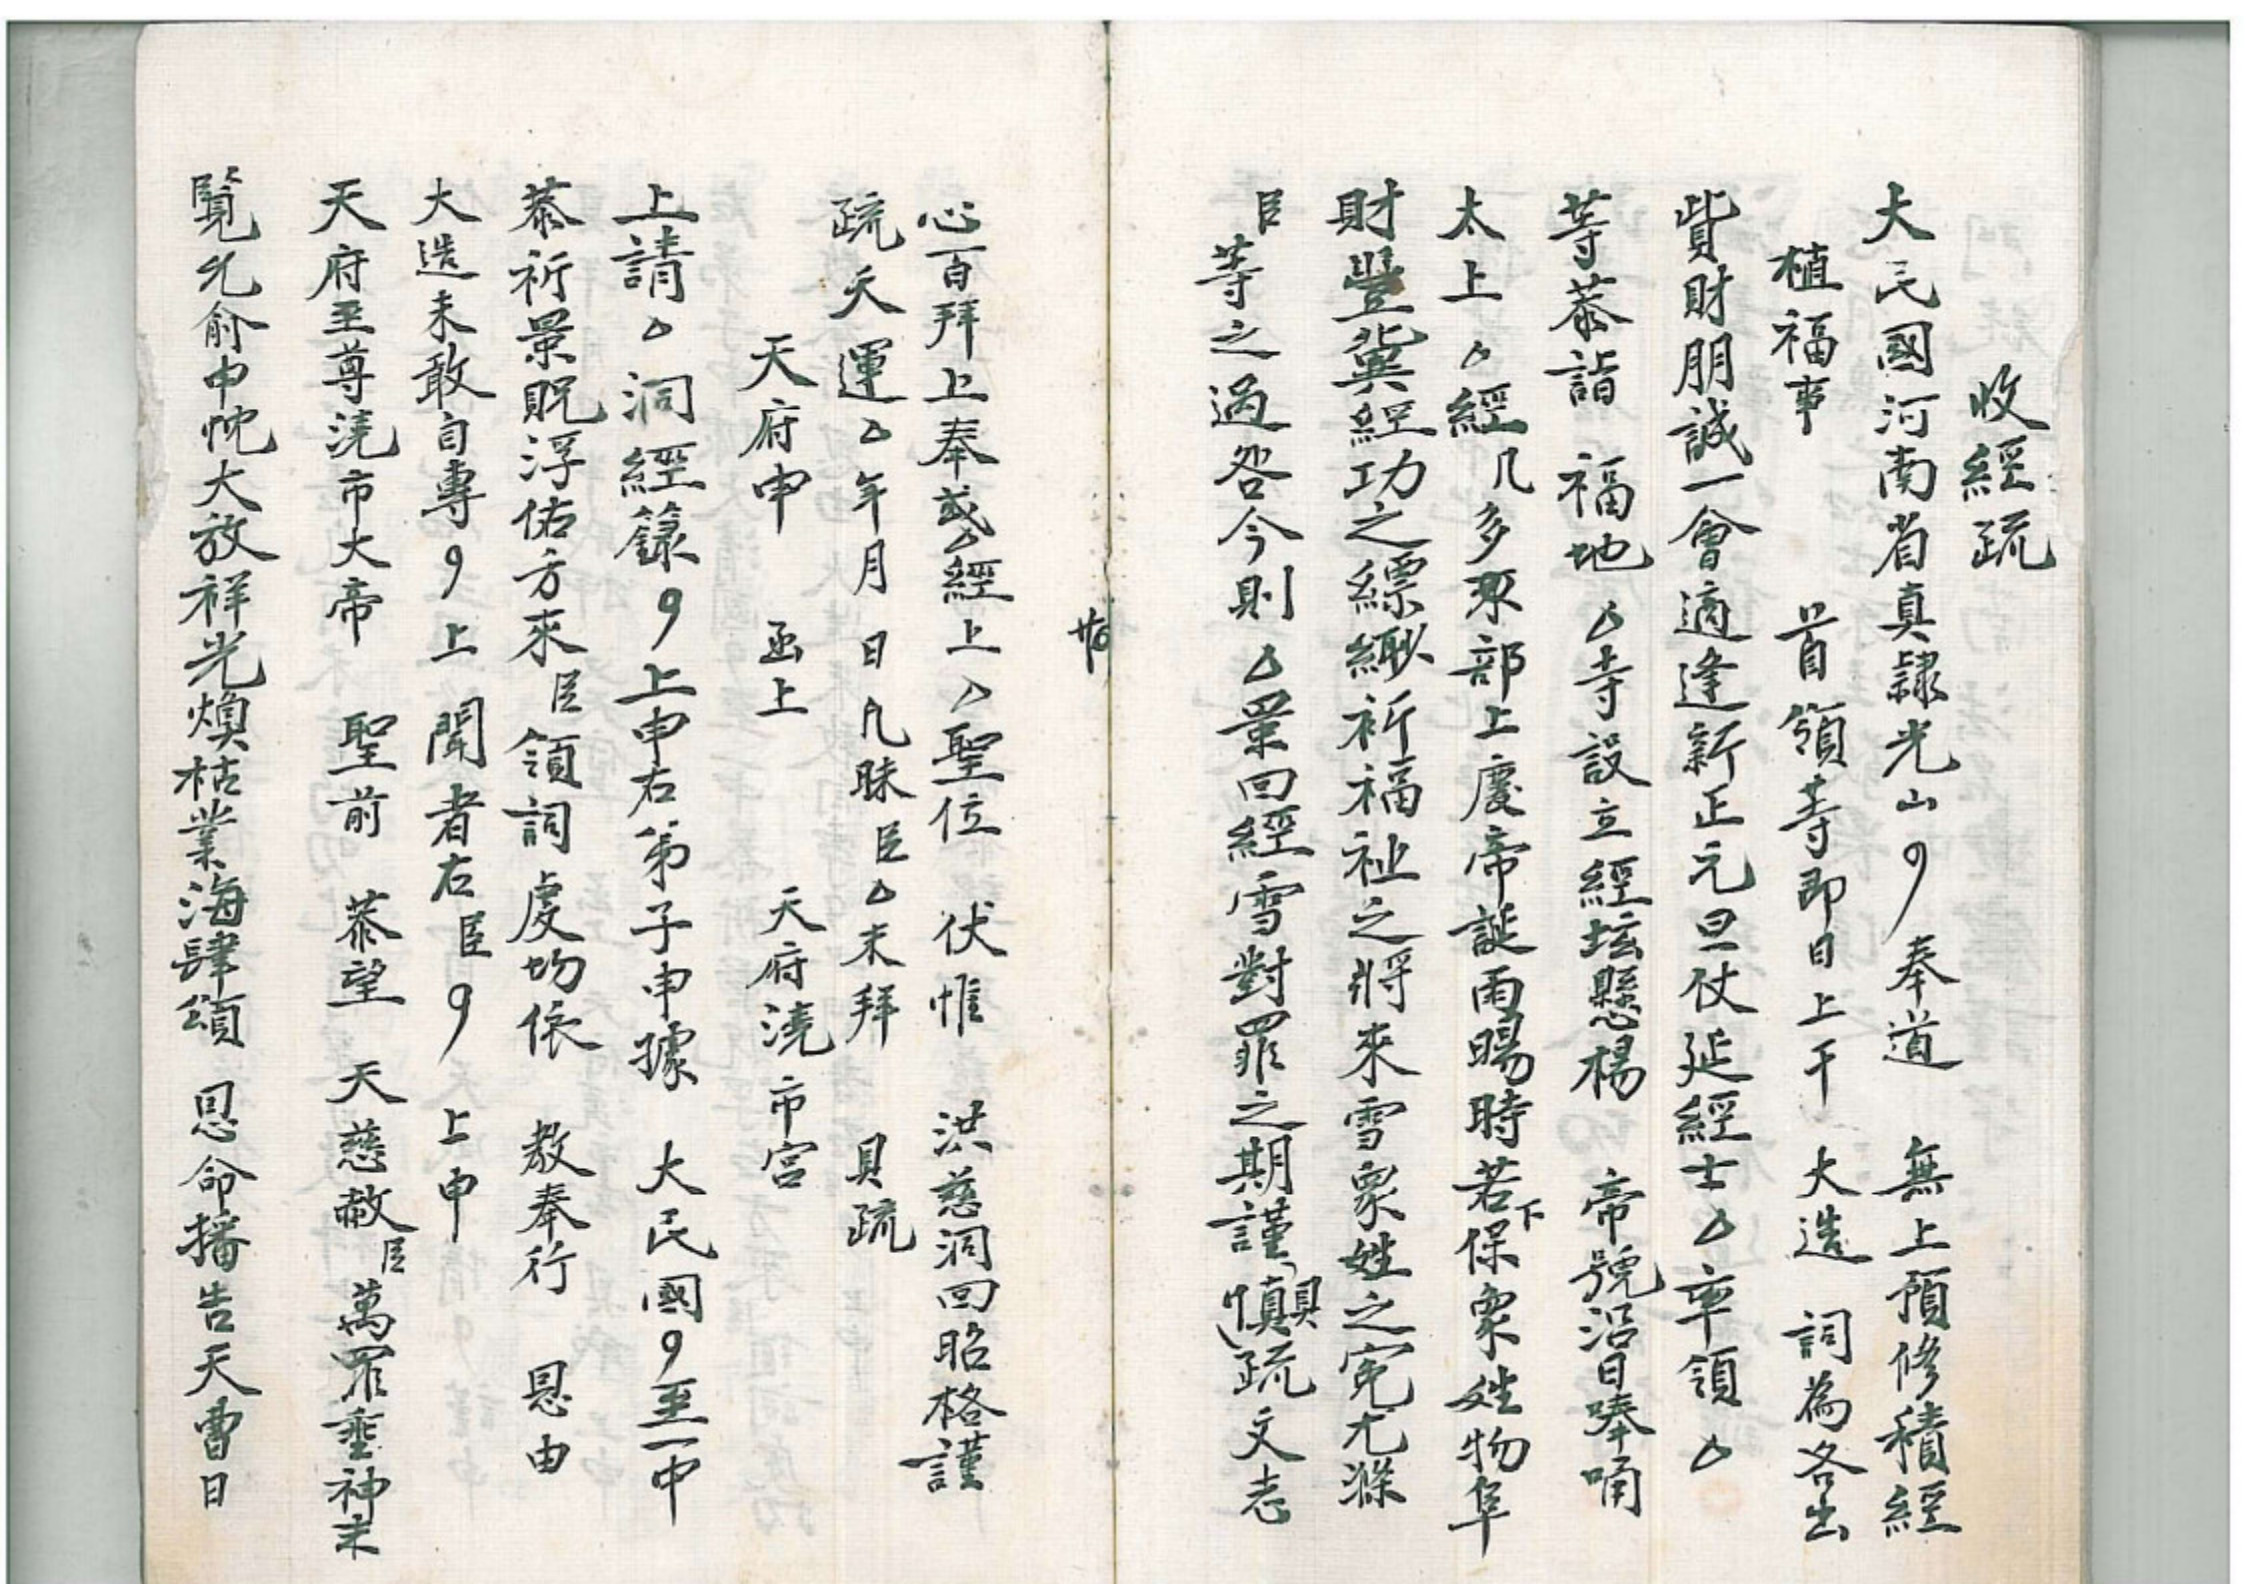 收經疏
大民國河南省真隸光山 奉道 無上預修積經
植福事 首領等即日上干 大造 詞為各出
貲財朋誠一會適逢新正元旦仗延經士△率領△
等恭詣 福地△寺設立經壇懸楊 帝號沿日奉唪
太上△經几多冞部上慶帝誕雨暘時若下保眾姓物阜
財豐冀經功之縹緲祈福祉之將來雪眾姓之冤尤滌
臣等之過咎今則△業回經雪對罪之期謹具慎疏文志
心百拜上奉或△經上△聖位 伏惟 洪慈洞回昭格謹
疏天運△年月 日凡昧臣△末拜 具疏
天府申 函上 天府澆市宮
上請△洞經籙 上申右弟子申據 大民國 至一中
恭祈景貺浮佑方來臣領詞虔切依 教奉行 恩由
大造未敢自專 上聞者右臣 上申
天府至尊澆市大帝 聖前 恭望 天慈赦臣萬罪垂神末
覽允俞申忱大放祥光煥枯業海肆頒 恩命播告天曹日